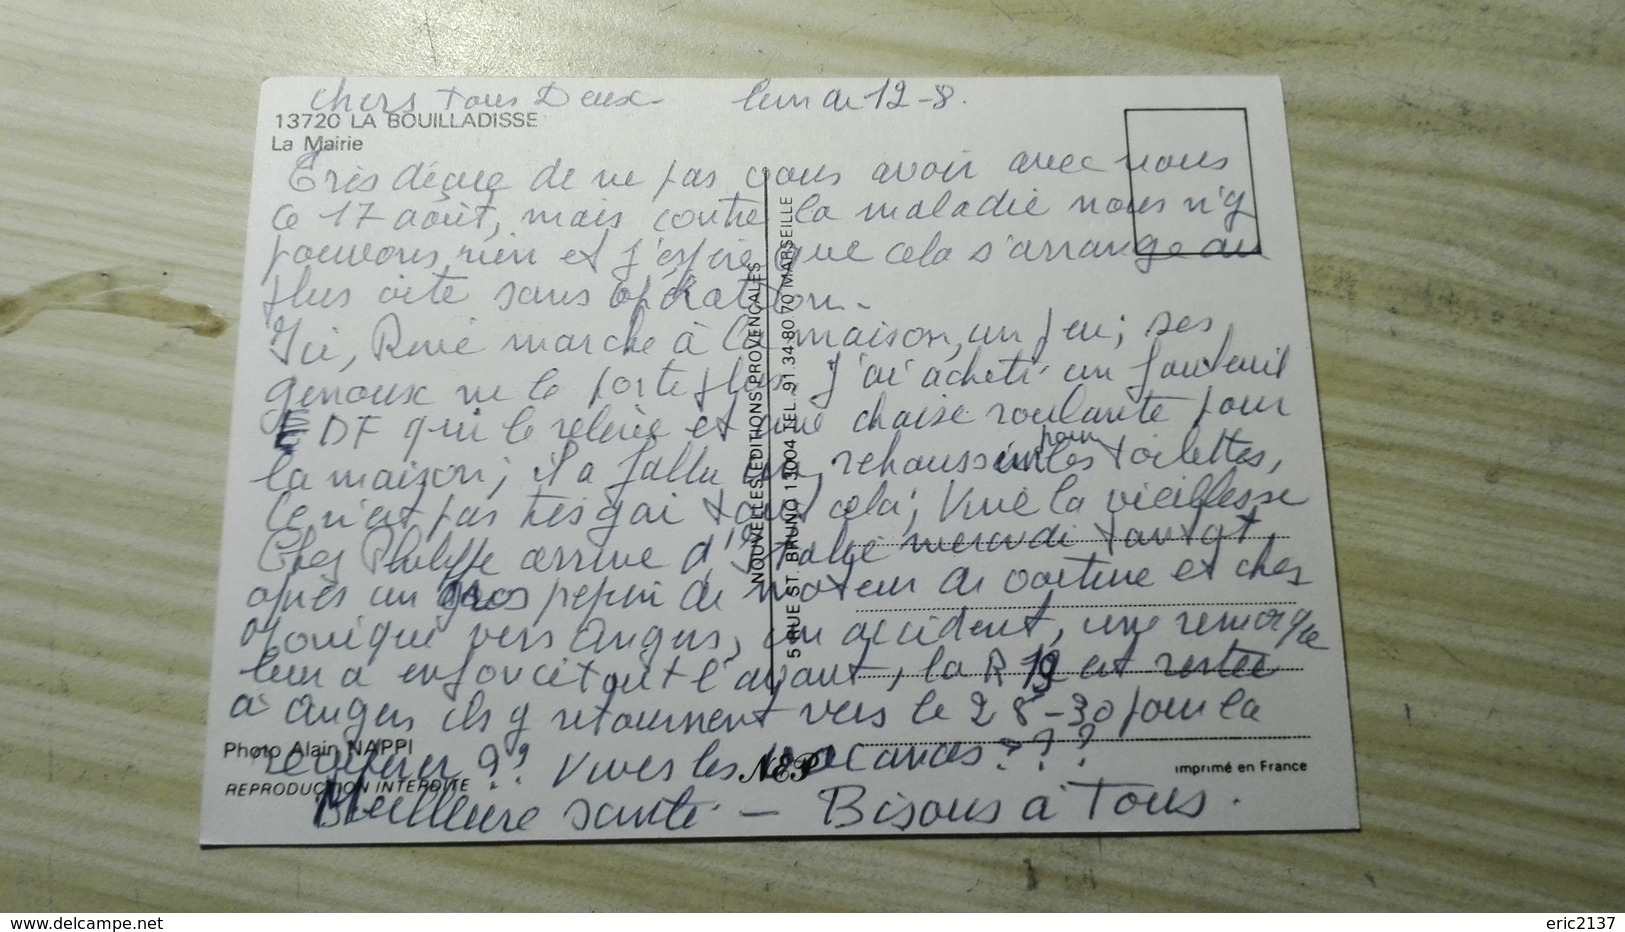 Chers Tous Deux lundi 12-8.
13720 LA BOUILLADISSE
La Mairie
Très déçue de ne pas vous avoir avec nous
ce 17 août, mais contre la maladie nous n'y
pouvons rien et j'espère que cela s'arrange au
plus vite sans opération.
Ici, René marche à la maison, un peu; ses
genoux ne le porte plus. J'ai acheté un fauteuil
EDF qui le relève et une chaise roulante pour
la maison; il a fallu un rehausseur pour les toilettes,
Ce n'est pas très gai tout cela; Vive la vieillesse
Chez Philippe arrive d'Italie mercredi tantôt,
après un gros pépin de moteur de voiture et chez
Monique vers Angers, un accident, une remorque
leur a enfoncé tout l'avant, la R 19 est restée
à Angers ils y retournent vers le 28-30 pour la
récupérer ?? Vives les vacances ???
Meilleure santé - Bisous à Tous.
NOUVELLES EDITIONS PROVENCALES
5 RUE ST. BRUNO 13004 TEL. 91.34.80.70 MARSEILLE
Photo Alain NAPPI
REPRODUCTION INTERDITE
NEP
Imprimé en France
www.delcampe.net
eric2137